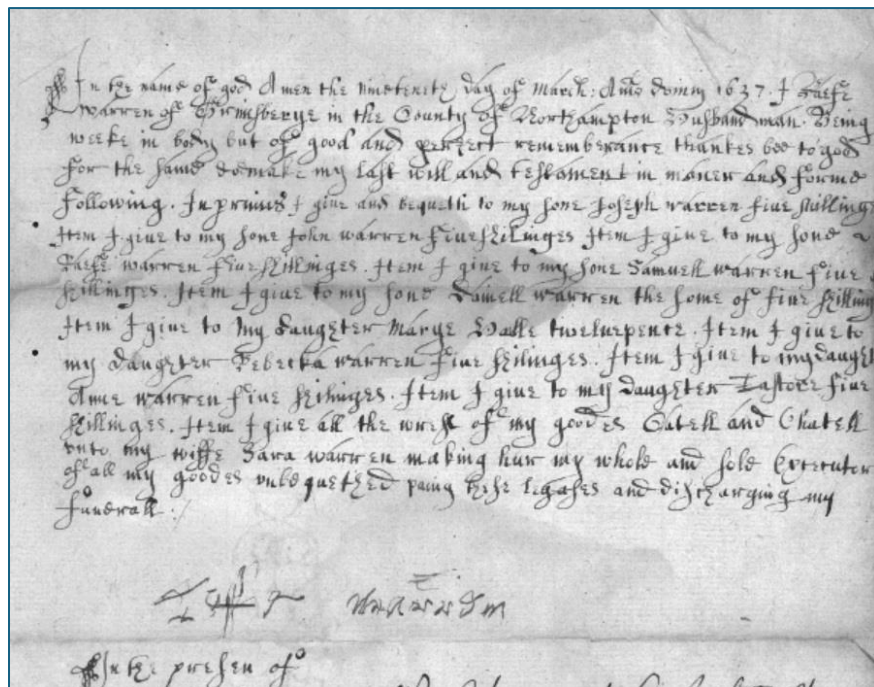 In the name of god Amen the ninetenth day of March: Ano domin 1637. I Raefe
warren of in the County of Northampton Husbandman. Being
weeke in body but of good and perfect rememberance thankes bee to god
for the same do make my last will and testament in maner and forme
following. Inprimis I give and bequeth to my sone Joseph warren five shillinge
Item I give to my sone John warren five shillinges Item I give to my sone
Raefe warren five shillinges. Item I give to my sone Samuell warren five
shillinges. Item I give to my sone Daniell warren the some of five shilling
Item I give to my daughter Marye Walle twelvepence. Item I give to
my daughter Rebecka warren five shilinges. Item I give to my daught
Anne warren five shilinges. Item I give to my daughter five
shillinges. Item I give all the wrest of my goodes Catell and Chatell
unto my wiffe Sara warren making hur my whole and sole Executer
of all my goodes unbequethed paing these legases and discharging my
funerall
In the presen of